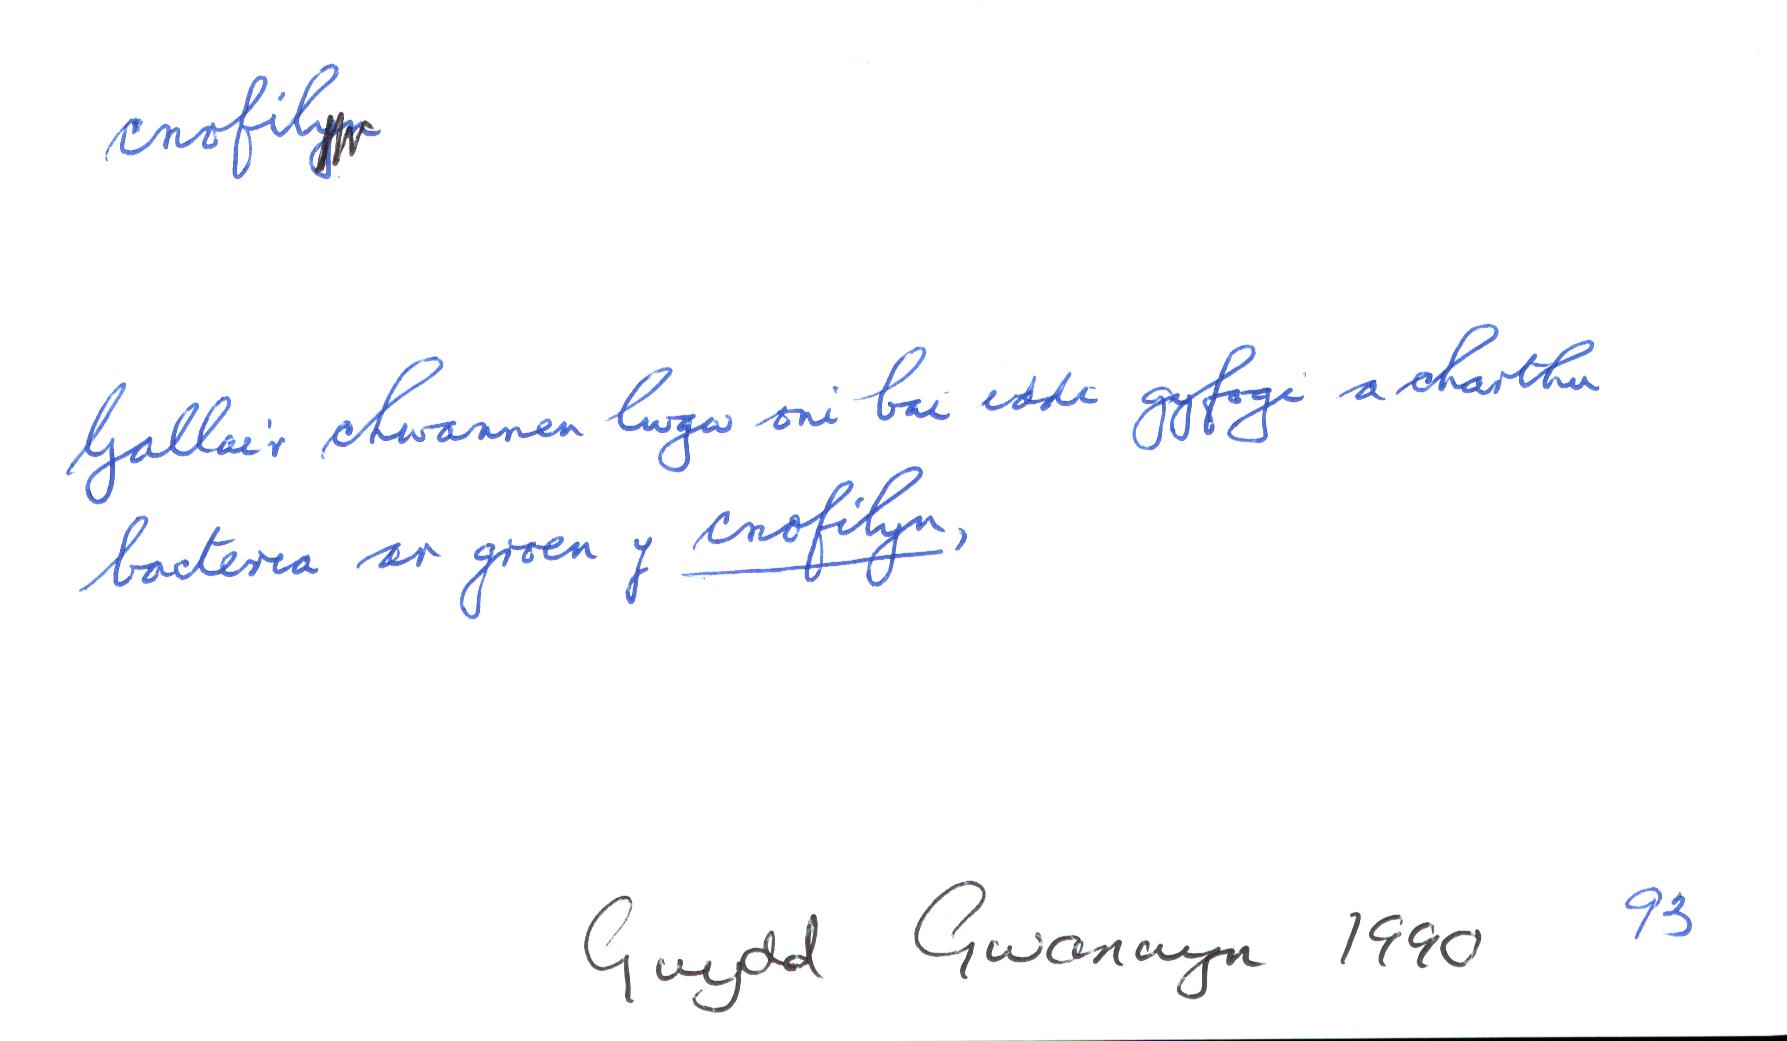 cnofilyn
Gallai'r chwannen lwgu oni bai iddi gyfogi a charthu
bacteria ar groen y cnofilyn,
Gwydd Gwanwyn 1990 93